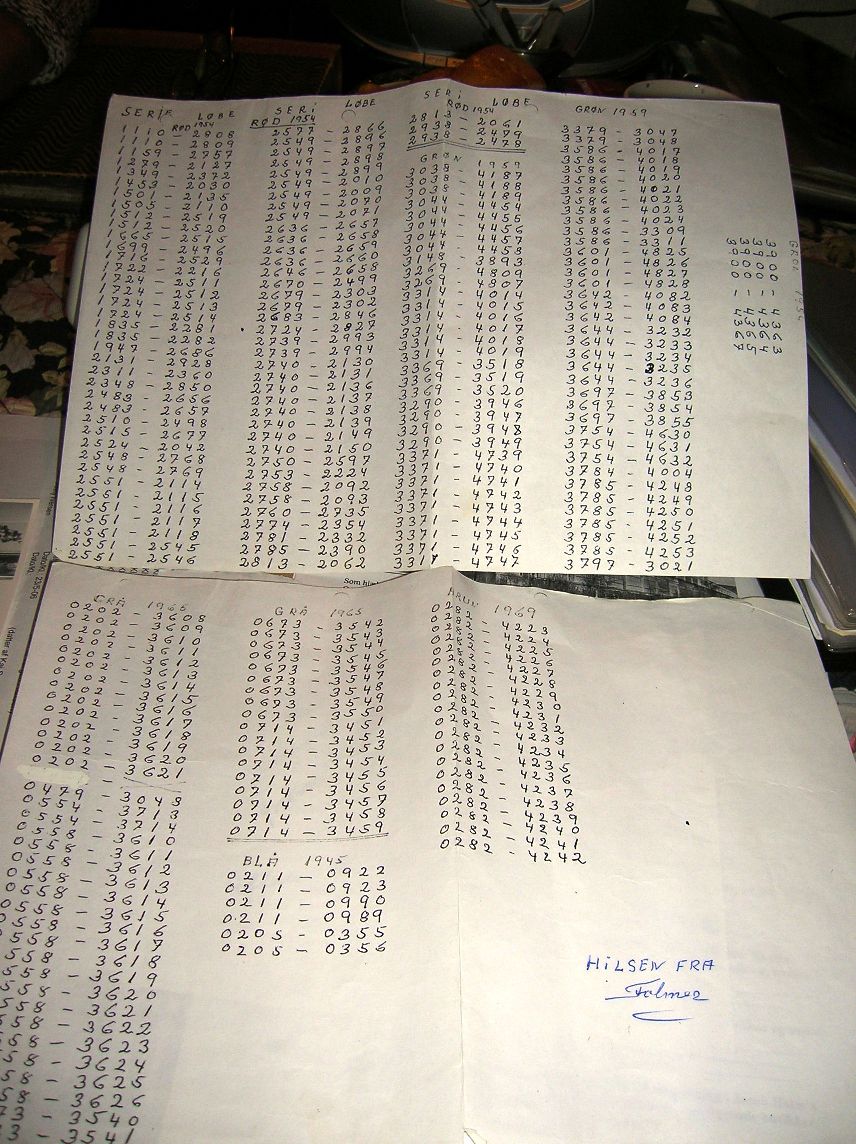 SERIE LØBE
RØD 1954
1110 - 2808
1110 - 2809
1159 - 2757
1279 - 2127
1349 - 2372
1453 - 2030
1501 - 2135
1505 - 2110
1512 - 2519
1512 - 2520
1665 - 2515
1699 - 2496
1716 - 2529
1722 - 2216
1724 - 2511
1724 - 2512
1724 - 2513
1724 - 2514
1835 - 2281
1835 - 2282
1947 - 2686
2131 - 2928
2311 - 2360
2348 - 2850
2483 - 2656
2483 - 2657
2510 - 2498
2515 - 2677
2524 - 2042
2548 - 2768
2548 - 2769
2551 - 2114
2551 - 2115
2551 - 2116
2551 - 2117
2551 - 2118
2551 - 2545
2551 - 2546
SERi LØBE
RØD 1954
2577 - 2866
2549 - 2896
2549 - 2897
2549 - 2898
2549 - 2899
2549 - 2010
2549 - 2009
2549 - 2070
2549 - 2071
2636 - 2657
2636 - 2658
2636 - 2659
2636 - 2660
2646 - 2658
2670 - 2499
2679 - 2303
2679 - 2302
2683 - 2846
2724 - 2827
2739 - 2993
2739 - 2994
2740 - 2130
2740 - 2131
2740 - 2136
2740 - 2137
2740 - 2138
2740 - 2139
2740 - 2149
2740 - 2150
2750 - 2597
2753 - 2224
2758 - 2092
2758 - 2093
2760 - 2735
2774 - 2354
2781 - 2332
2785 - 2390
2813 - 2062
SERi LØBE
RØD 1954
2813 - 2061
2938 - 2479
2938 - 2478
GRØN 1959
3038 - 4187
3038 - 4188
3038 - 4189
3044 - 4454
3044 - 4455
3044 - 4456
3044 - 4457
3044 - 4458
3148 - 3893
3269 - 4809
3269 - 4807
3314 - 4014
3314 - 4015
3314 - 4016
3314 - 4017
3314 - 4018
3314 - 4019
3369 - 3518
3369 - 3519
3369 - 3520
3290 - 3946
3290 - 3947
3290 - 3948
3290 - 3949
3371 - 4739
3371 - 4740
3371 - 4741
3371 - 4742
3371 - 4743
3371 - 4744
3371 - 4745
3371 - 4746
3371 - 4747
GRØN 1959
3379 - 3047
3379 - 3048
3586 - 4017
3586 - 4018
3586 - 4019
3586 - 4020
3586 - 4021
3586 - 4022
3586 - 4023
3586 - 4024
3586 - 3309
3586 - 3311
3601 - 4825
3601 - 4826
3601 - 4827
3601 - 4828
3642 - 4082
3642 - 4083
3642 - 4084
3644 - 3232
3644 - 3233
3644 - 3234
3644 - 3235
3644 - 3236
3697 - 3853
3697 - 3854
3697 - 3855
3754 - 4630
3754 - 4631
3754 - 4632
3784 - 4004
3785 - 4248
3785 - 4249
3785 - 4250
3785 - 4251
3785 - 4252
3785 - 4253
3797 - 3021
GRØN 1954
3900 - 4363
3900 - 4364
3900 - 4365
3900 - 4367
GRÅ 1965
0202 - 3608
0202 - 3609
0202 - 3610
0202 - 3611
0202 - 3612
0202 - 3613
0202 - 3614
0202 - 3615
0202 - 3616
0202 - 3617
0202 - 3618
0202 - 3619
0202 - 3620
0202 - 3621
0479 - 3048
0554 - 3713
0554 - 3714
0558 - 3610
0558 - 3611
0558 - 3612
0558 - 3613
0558 - 3614
0558 - 3615
0558 - 3616
0558 - 3617
558 - 3618
558 - 3619
558 - 3620
558 - 3621
558 - 3622
58 - 3623
58 - 3624
58 - 3625
58 - 3626
73 - 3540
3 - 3541
GRÅ 1965
0673 - 3542
0673 - 3543
0673 - 3544
0673 - 3545
0673 - 3546
0673 - 3547
0673 - 3548
0673 - 3549
0673 - 3550
0714 - 3451
0714 - 3452
0714 - 3453
0714 - 3454
0714 - 3455
0714 - 3456
0714 - 3457
0714 - 3458
0714 - 3459
BLÅ 1945
0211 - 0922
0211 - 0923
0211 - 0990
0211 - 0989
0205 - 0355
0205 - 0356
BRUN 1969
0282 - 4223
0282 - 4224
0282 - 4225
0282 - 4226
0282 - 4227
0282 - 4228
0282 - 4229
0282 - 4230
0282 - 4231
0282 - 4232
0282 - 4233
0282 - 4234
0282 - 4235
0282 - 4236
0282 - 4237
0282 - 4238
0282 - 4239
0282 - 4240
0282 - 4241
0282 - 4242
HiLSEN FRA
Folmer